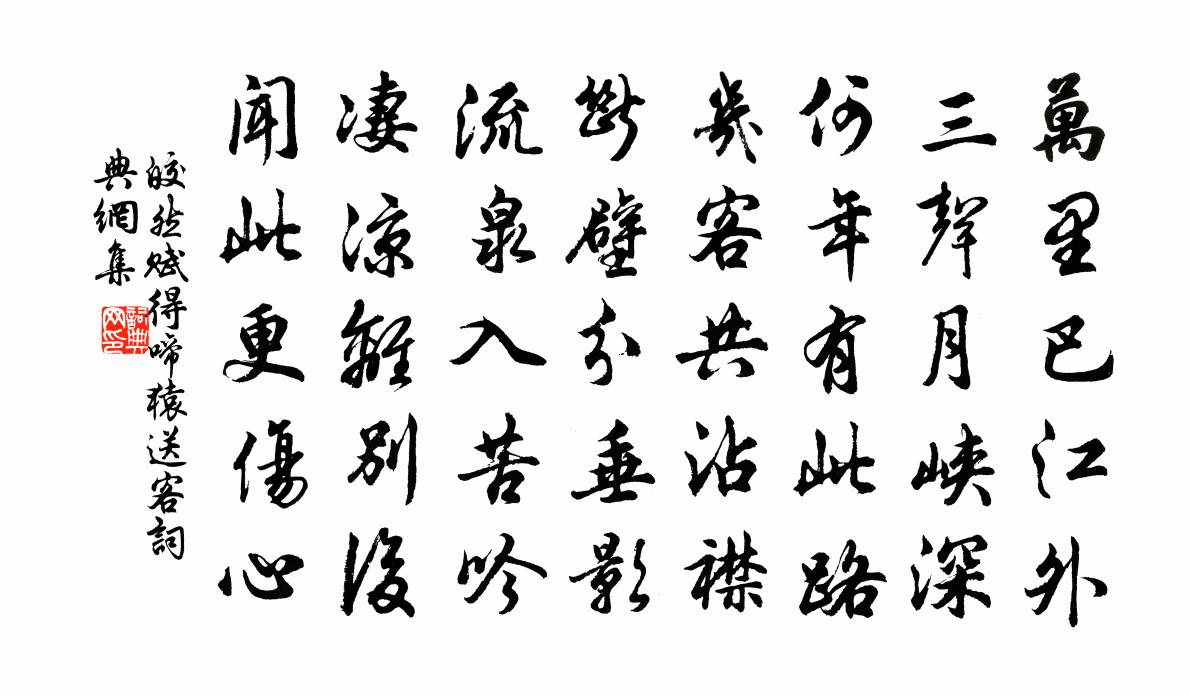 萬里巴江外
三聲月峽深
何年有此路
幾客共沾襟
斷壁分垂影
流泉入苦吟
凄涼離別後
聞此更傷心
皎然賦得啼猿送客詞
典網集
詞典
网印